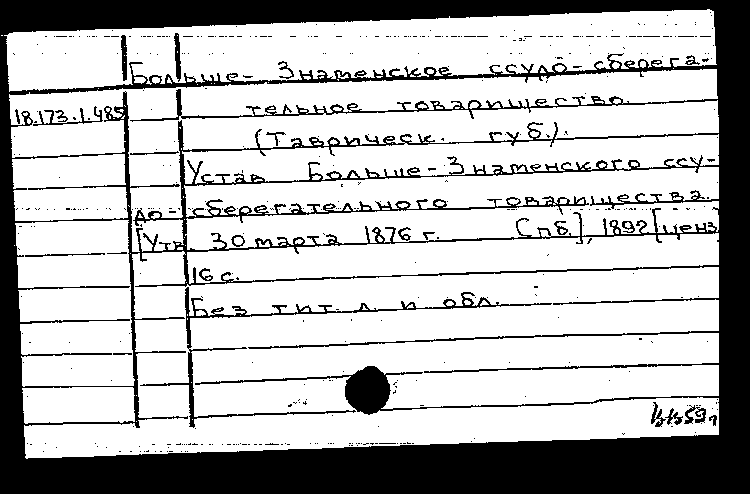 Больше-Знаменское ссудо-сберега-
18.173.1.485 тельное товарищество.
(Таврическ. губ.).
Устав Больше-Знаменского ссу-
до-сберегательного товарищества.
[Утв. 30 марта 1876 г. Спб.], 1892 [ценз]
16 с.
Без тит. л. и обл.